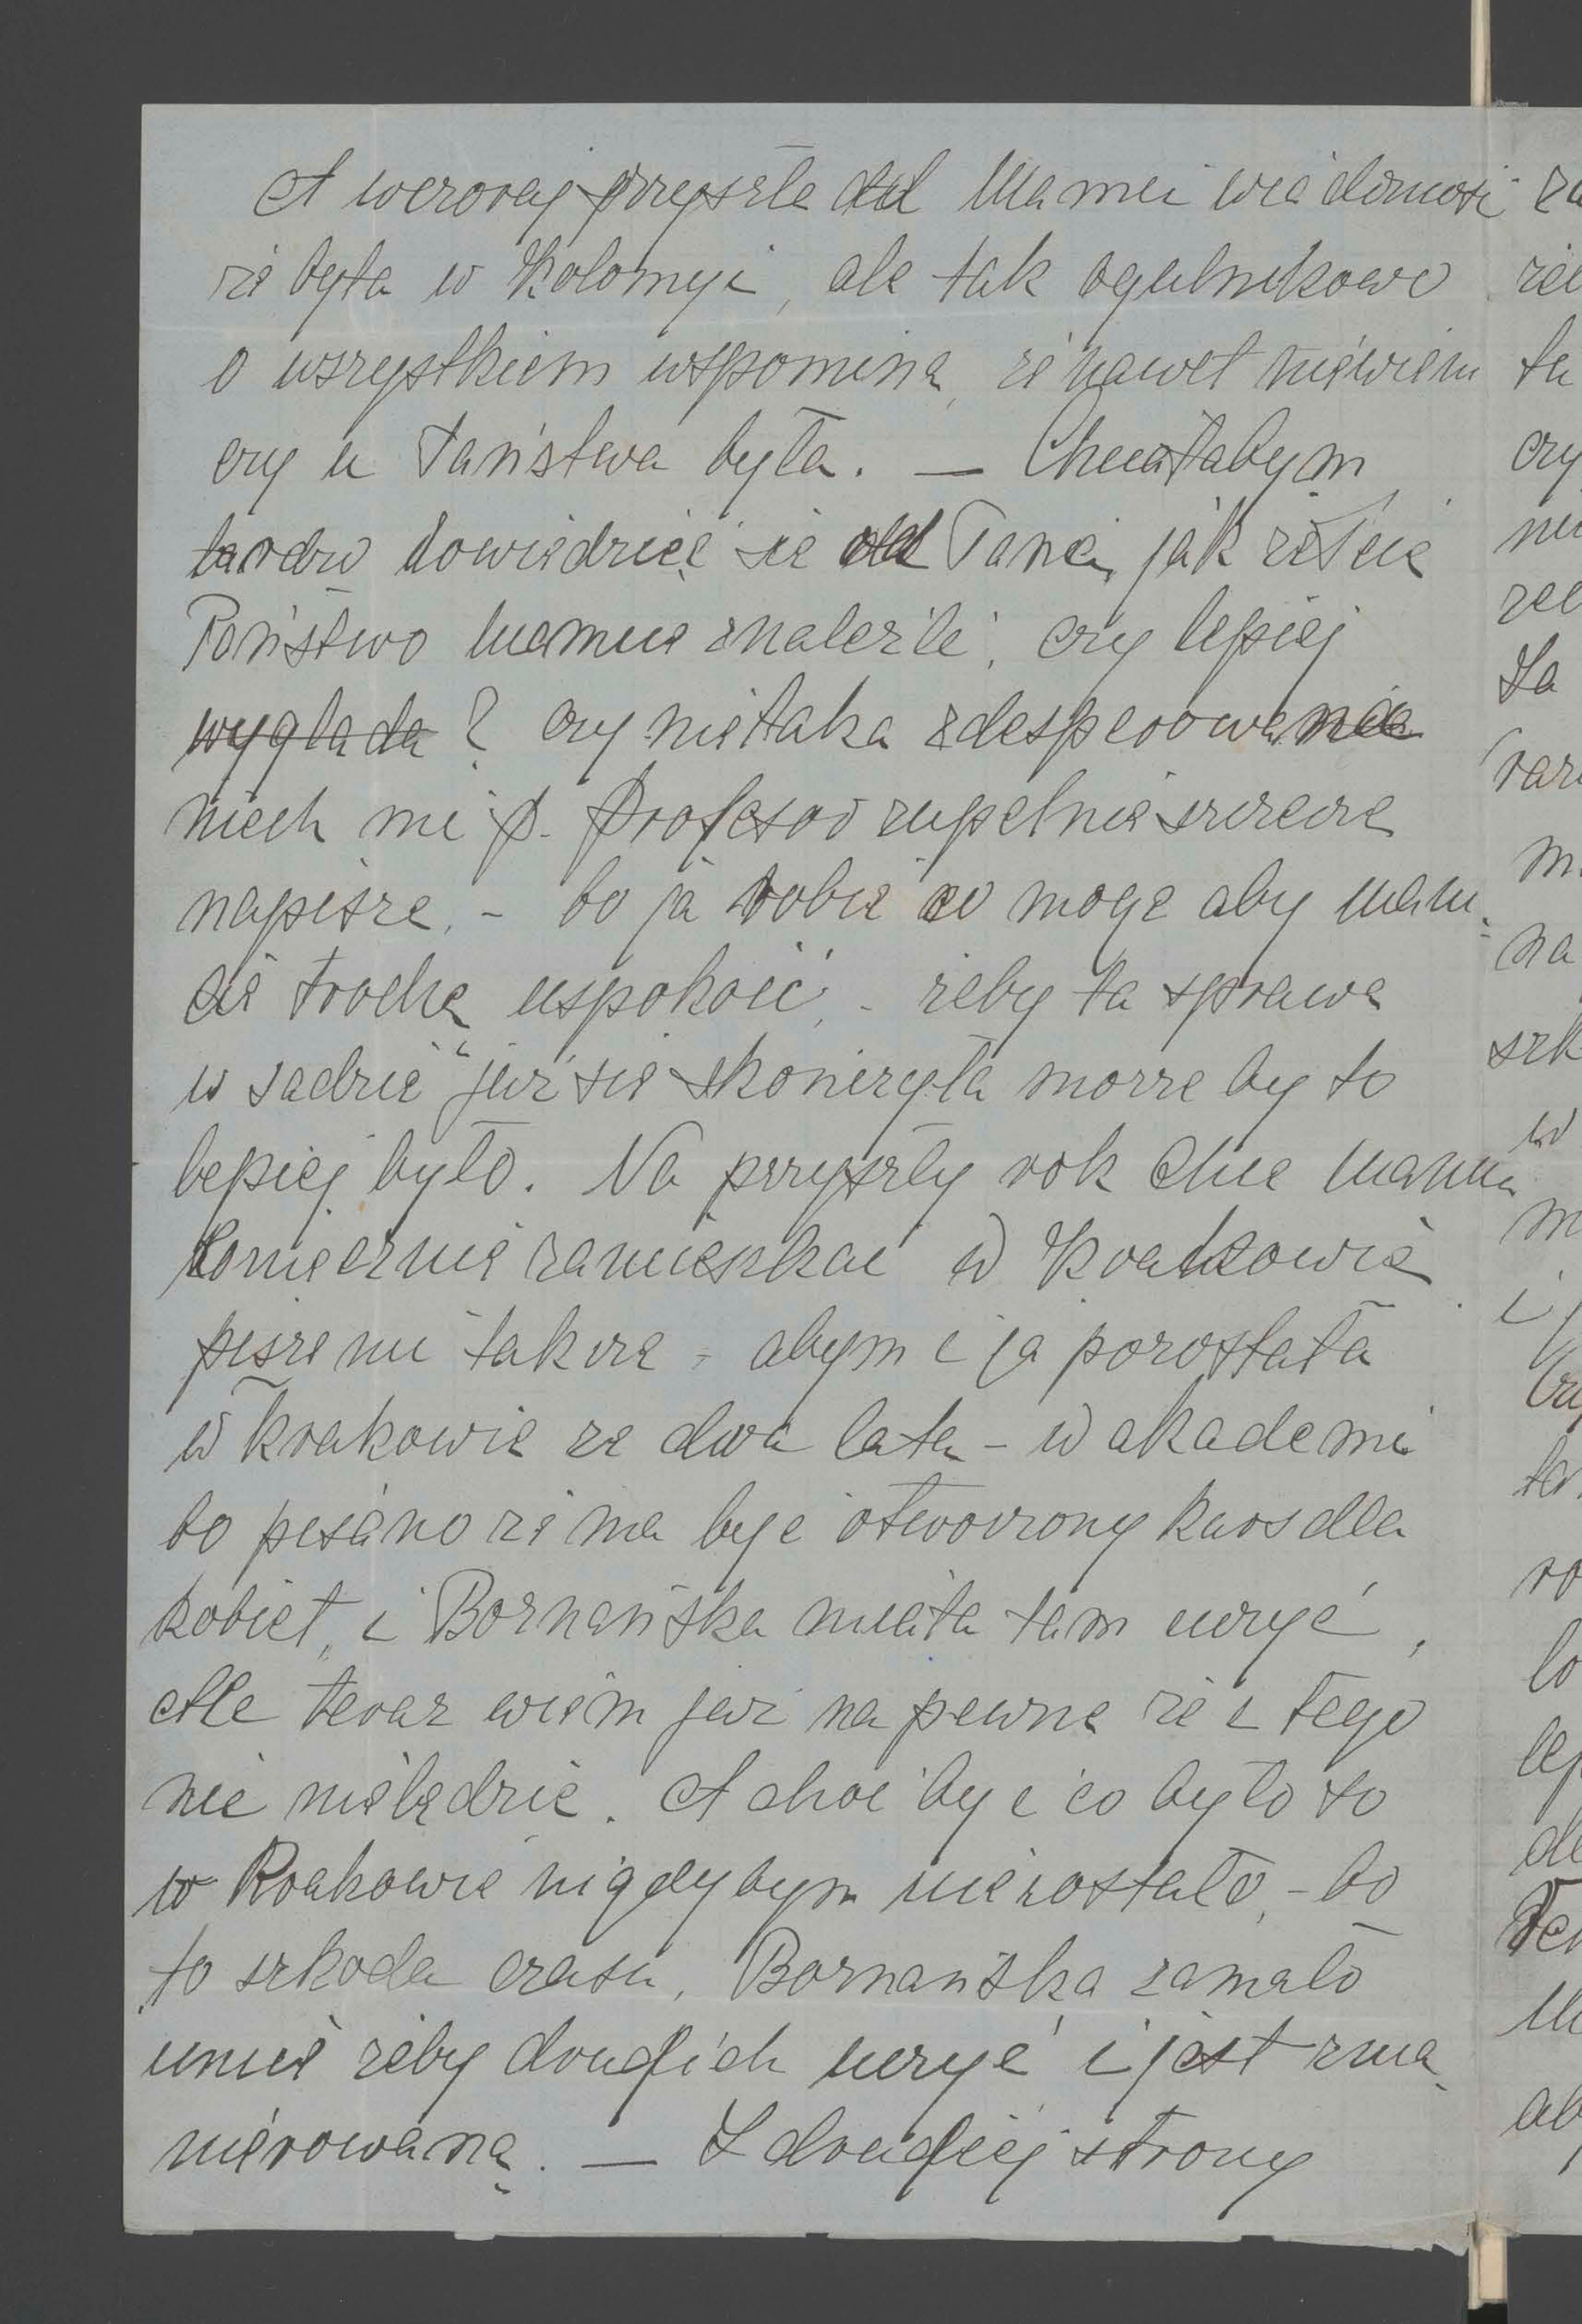 A wczoraj przyszła od Mamci wiadomość
że była w Kołomyi, ale tak ogulnikowo
o wszystkiem wspomina, że nawet niewiem
czy u Państwa była. — Chciałabym
bardzo dowiedzieć się od Pana, jak żeście
Państwo mamcię znaleźli, czy lepiej
wygląda? czy nietaka zdesperowana
niech mi p. Profesor zupełnie szczerze
napisze, - bo ja robię co mogę aby mam-
cię trochę uspokoić, - żeby ta sprawa
w sądzie już się skończyła morze by to
lepiej było. Na przyszły rok chce mama
koniecznie zamieszkać w Krakowie
pisze mi także - abym i ja pozostała
w Krakowie ze dwa lata - w akademi
bo pisano że ma być otworzony kurs dla
kobiet, i Boznańska miała tam uczyć,
Ale teraz wiem już na pewne że z tego
nic niebędzie. A choć by i co było to
w Krakowie nigdybym niezostała, - bo
to szkoda czasu, Boznańska zamało
umie żeby drugich uczyć i jest zma-
nierowaną. — Z drugiej strony